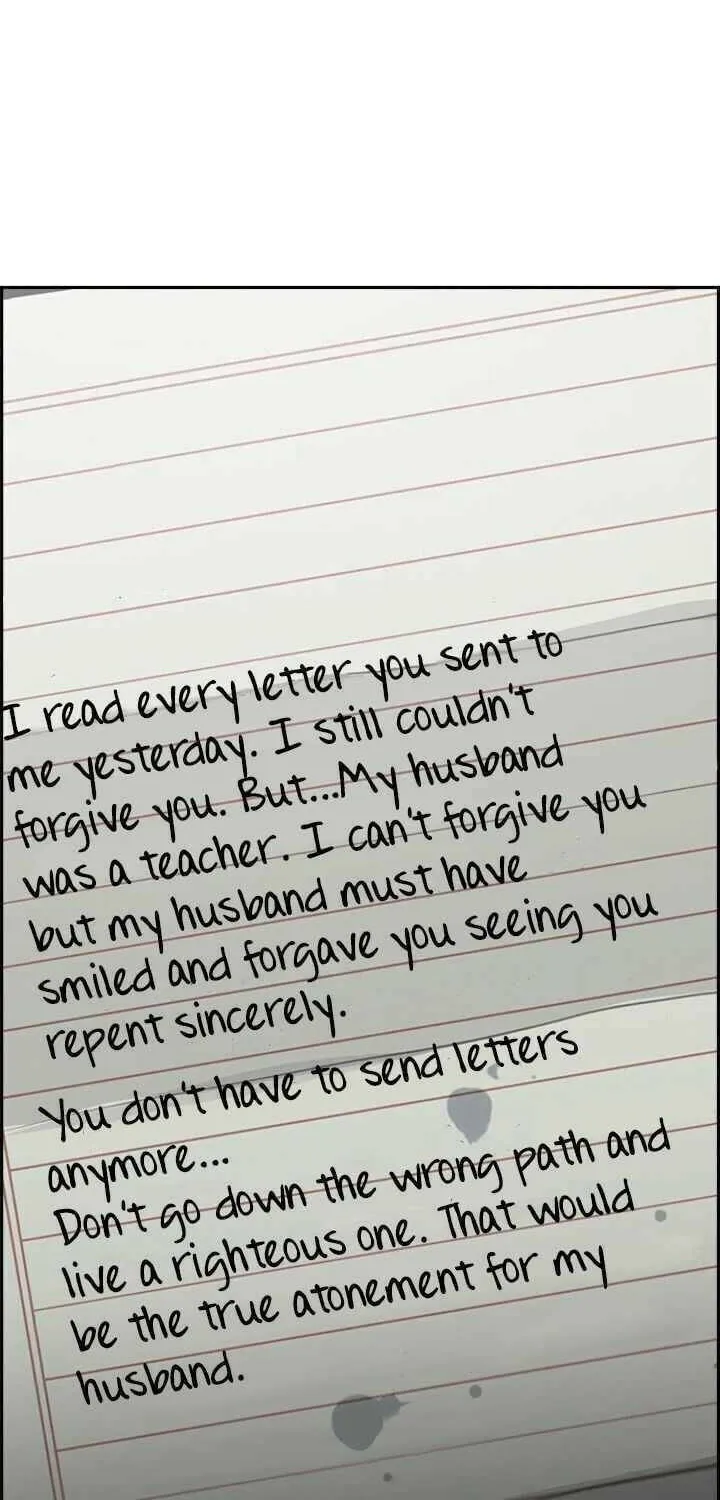 I read every letter you sent to
me yesterday. I still couldn't
forgive you. But...My husband
was a teacher. I can't forgive you
but my husband must have
smiled and forgave you seeing you
repent sincerely.
You don't have to send letters
anymore...
Don't go down the wrong path and
live a righteous one. That would
be the true atonement for my
husband.